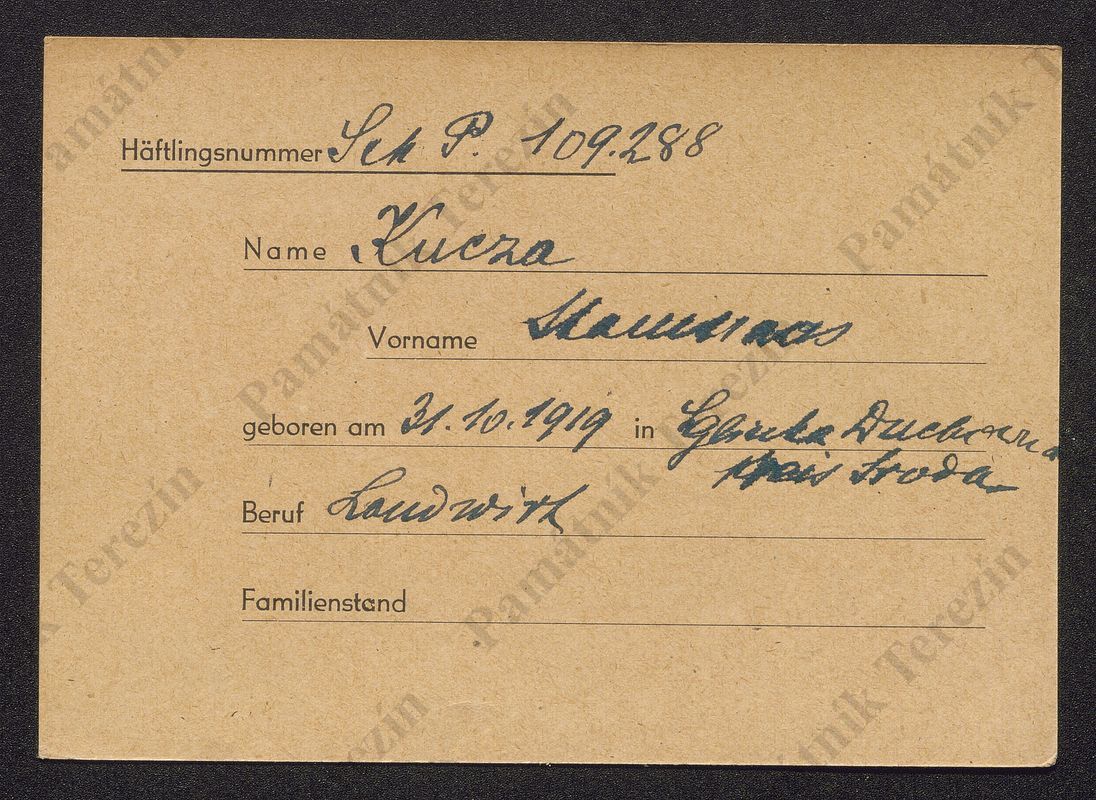 Häftlingsnummer Sch P. 109.288
Name Kucza
Vorname Stanislaus
geboren am 31.10.1919 in Glinka Duchowna
Kreis Sroda
Beruf Landwirt
Familienstand
Památník Terezín